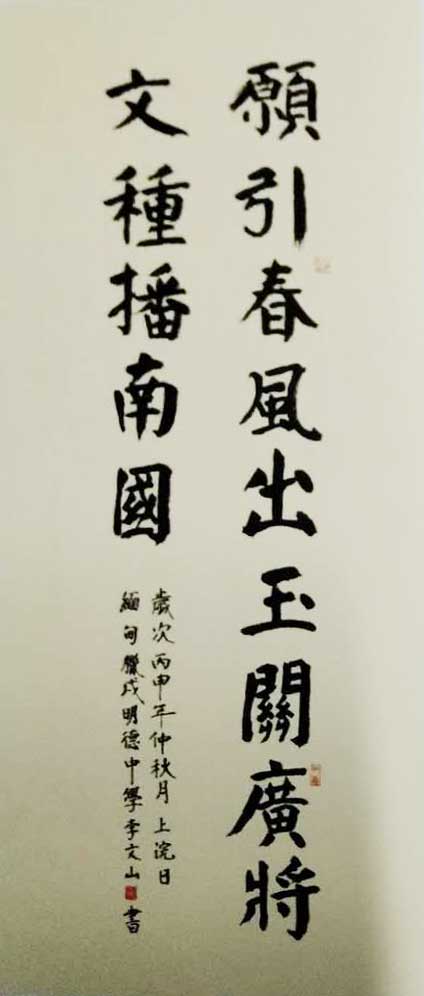 願引春風出玉關廣將
文種播南國
歲次丙申年仲秋月上浣日
緬甸臘戌明德中學李文山書